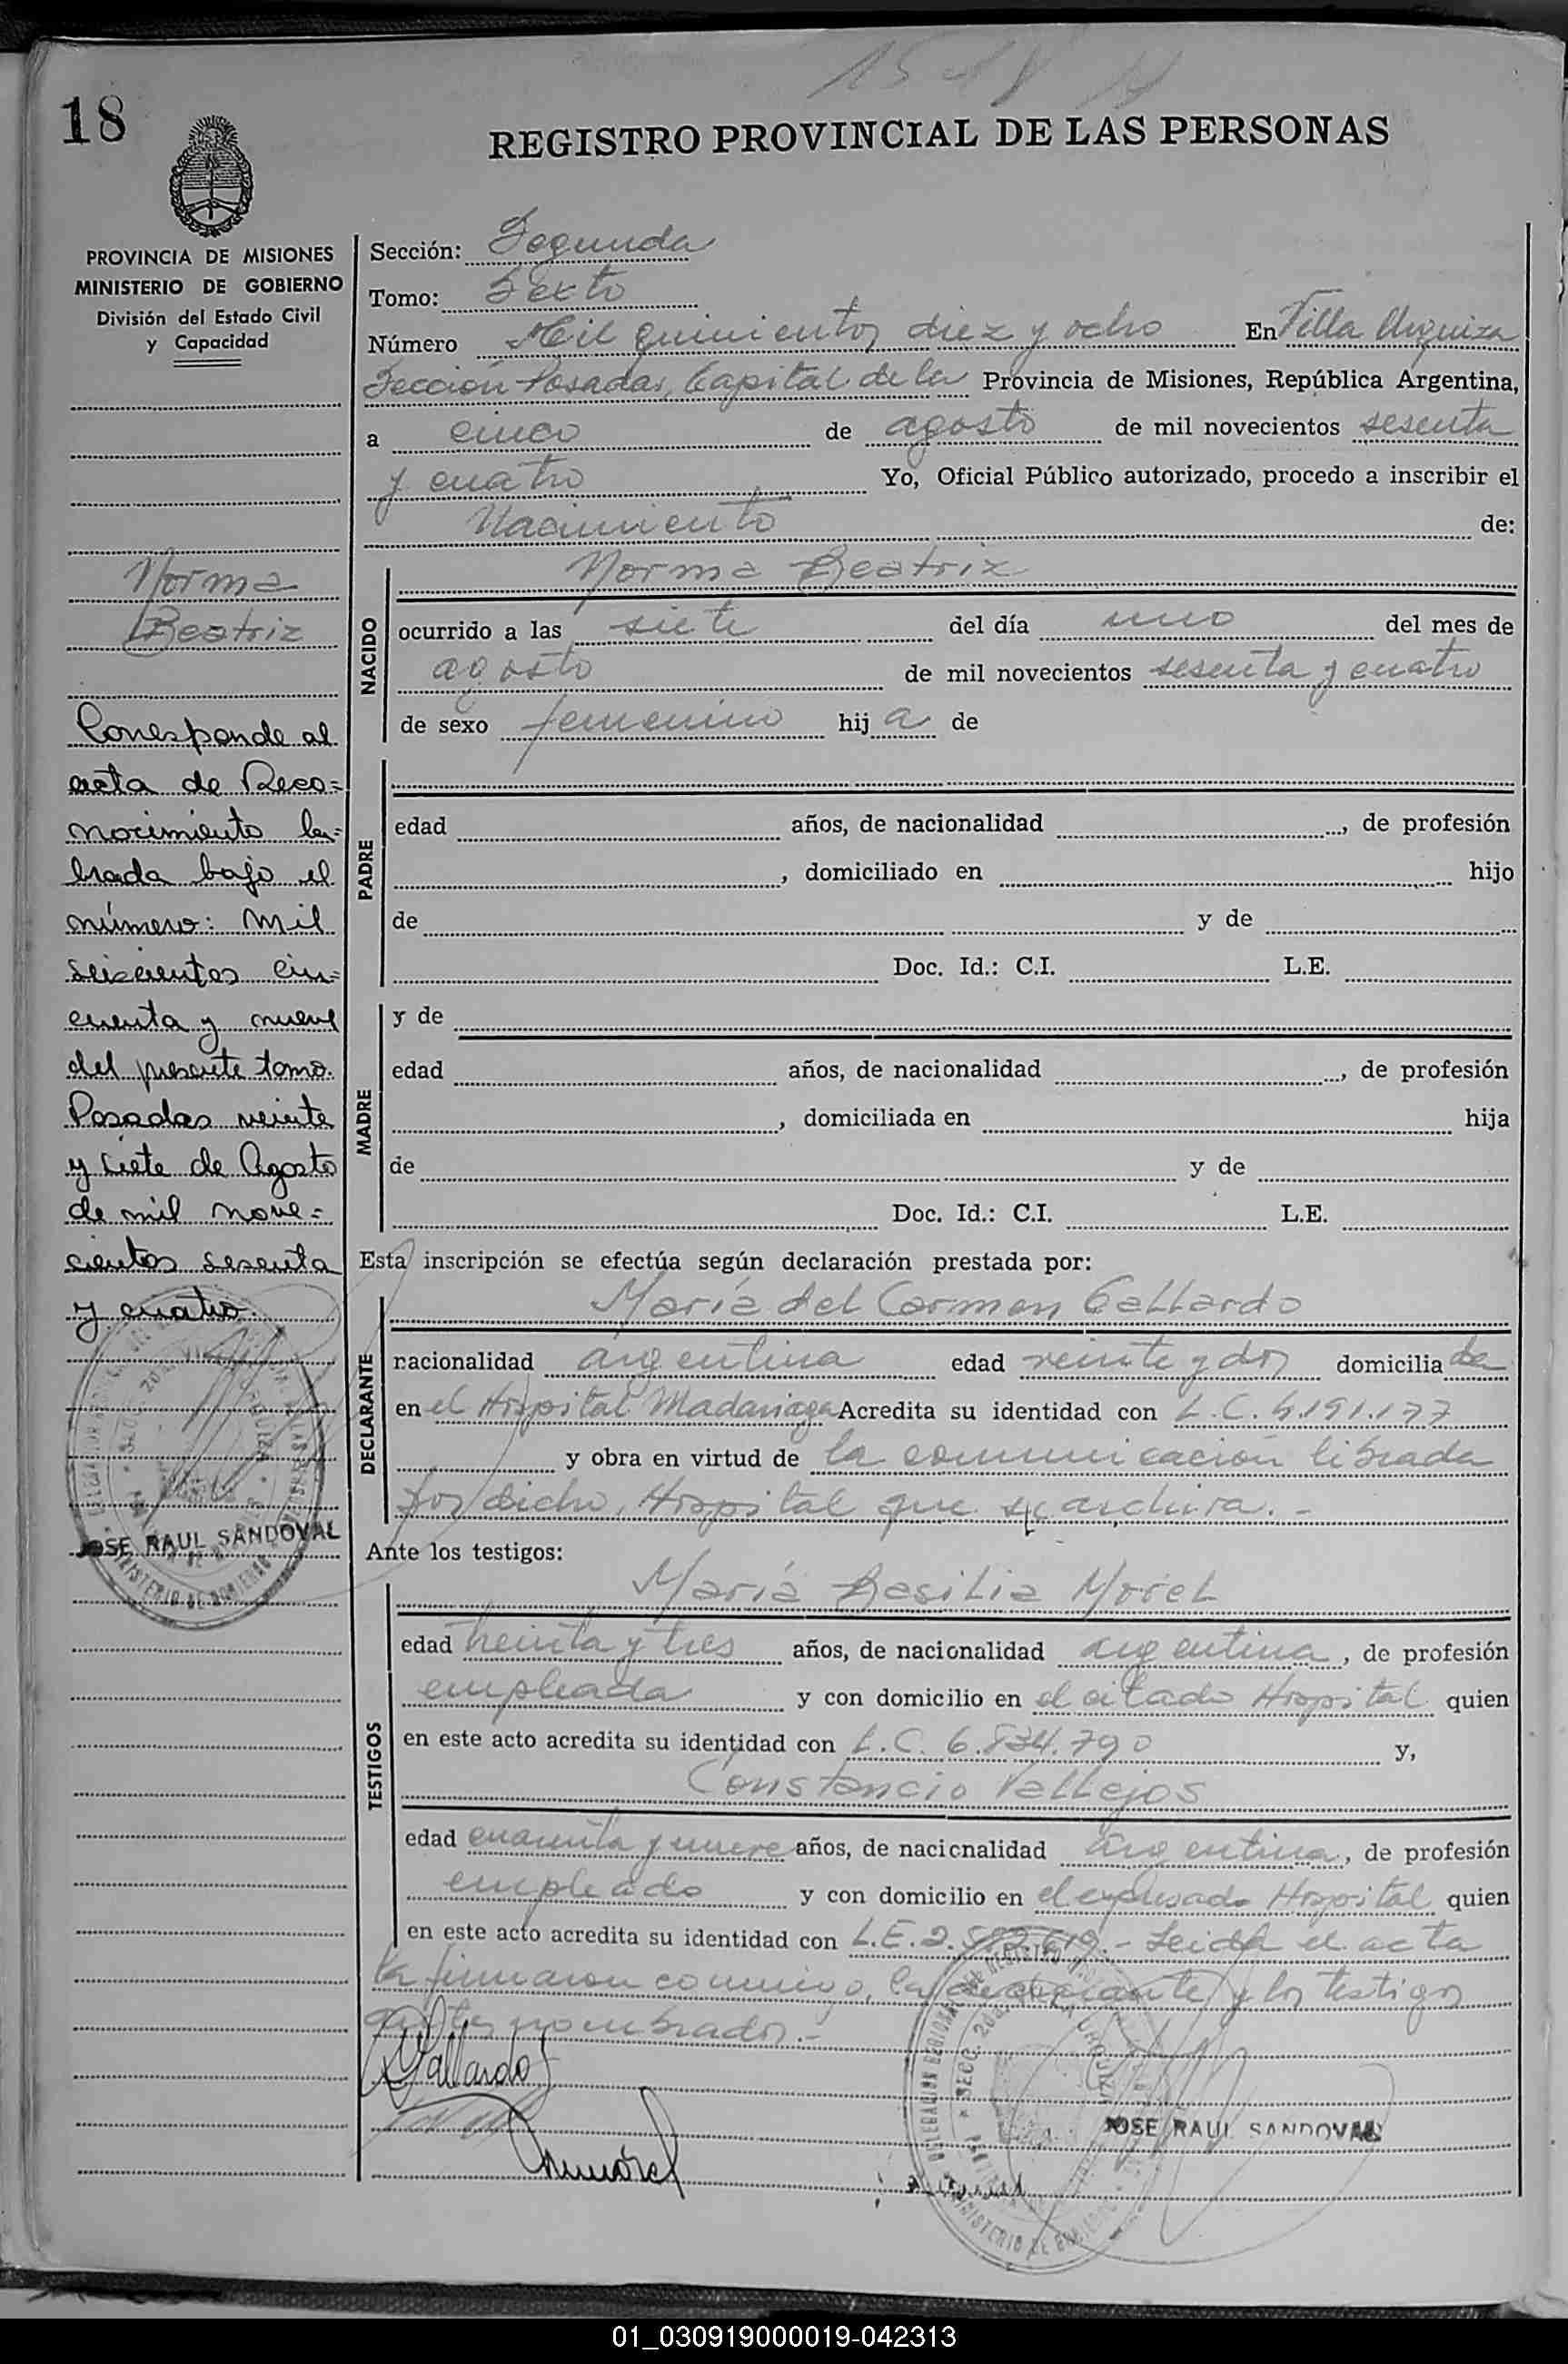 18
REGISTRO PROVINCIAL DE LAS PERSONAS
PROVINCIA DE MISIONES
MINISTERIO DE GOBIERNO
División del Estado Civil
y Capacidad
Norma
Beatriz
Corresponde al
acta de Reco=
nocimiento la=
brada bajo el
número: Mil
seiscientos cin=
cuenta y nueve
del presente tomo.
Posadas veinte
y siete de Agosto
de mil nove=
cientos sesenta
y cuatro.
JOSE RAUL SANDOVAL
Sección: Segunda
Tomo: Sexto
Número Mil quinientos diez y ocho En Villa Urquiza
Sección Posadas, Capital de la Provincia de Misiones, República Argentina,
a cinco de agosto de mil novecientos sesenta
y cuatro Yo, Oficial Público autorizado, procedo a inscribir el
Nacimiento de:
NACIDO
Norma Beatriz
ocurrido a las siete del día uno del mes de
agosto de mil novecientos sesenta y cuatro
de sexo femenino hij a de
PADRE
edad años, de nacionalidad , de profesión
, domiciliado en hijo
de y de
Doc. Id.: C.I. L.E.
MADRE
y de
edad años, de nacionalidad , de profesión
, domiciliada en hija
de y de
Doc. Id.: C.I. L.E.
Esta inscripción se efectúa según declaración prestada por:
DECLARANTE
María del Carmen Gallardo
nacionalidad argentina edad veinte y dos domicilia da
en el Hospital Madariaga Acredita su identidad con L.C. 4.191.177
y obra en virtud de la comunicación librada
por dicho Hospital que se archiva.-
Ante los testigos:
TESTIGOS
María Basilia Morel
edad treinta y tres años, de nacionalidad argentina, de profesión
empleada y con domicilio en el citado Hospital quien
en este acto acredita su identidad con L.C. 6.834.790 y,
Constancio Vallejos
edad cuarenta y nueve años, de nacionalidad argentina, de profesión
empleado y con domicilio en el expresado Hospital quien
en este acto acredita su identidad con L.E. 2. .- Leida el acta
la firmaron conmigo, la declarante y los testigos
antes nombrados.-
Gallardo
JOSE RAUL SANDOVAL
01_030919000019-042313